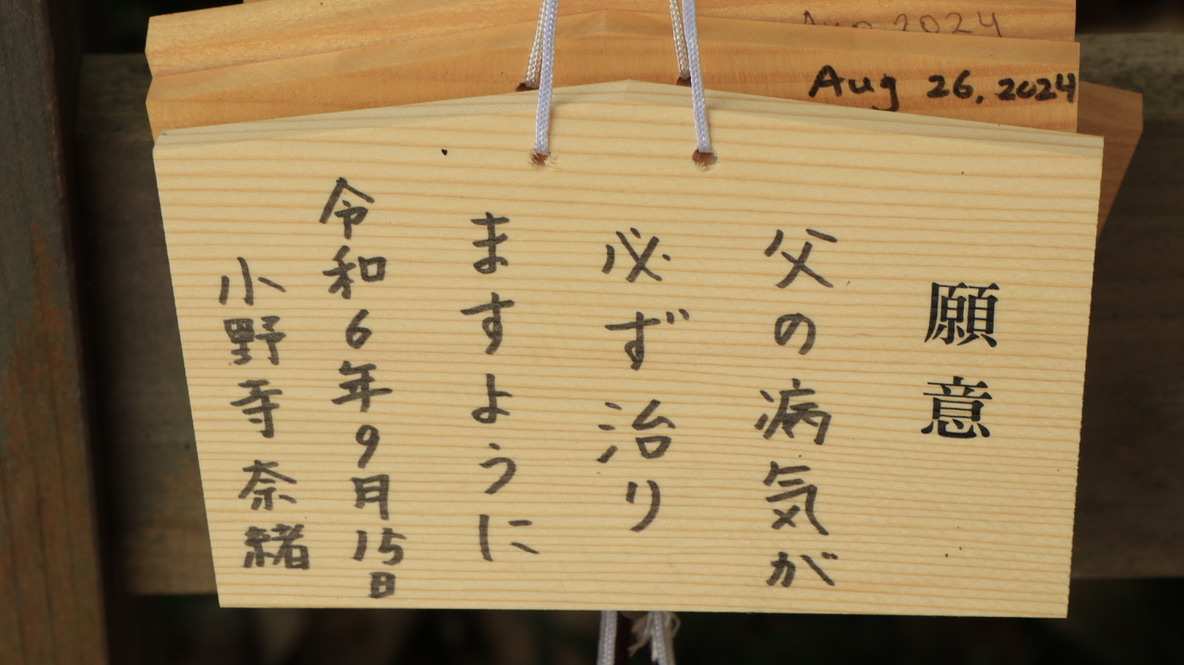 Aug 2024
Aug 26, 2024
願意
父の病気が
必ず治り
ますように
令和6年9月15日
小野寺奈緒